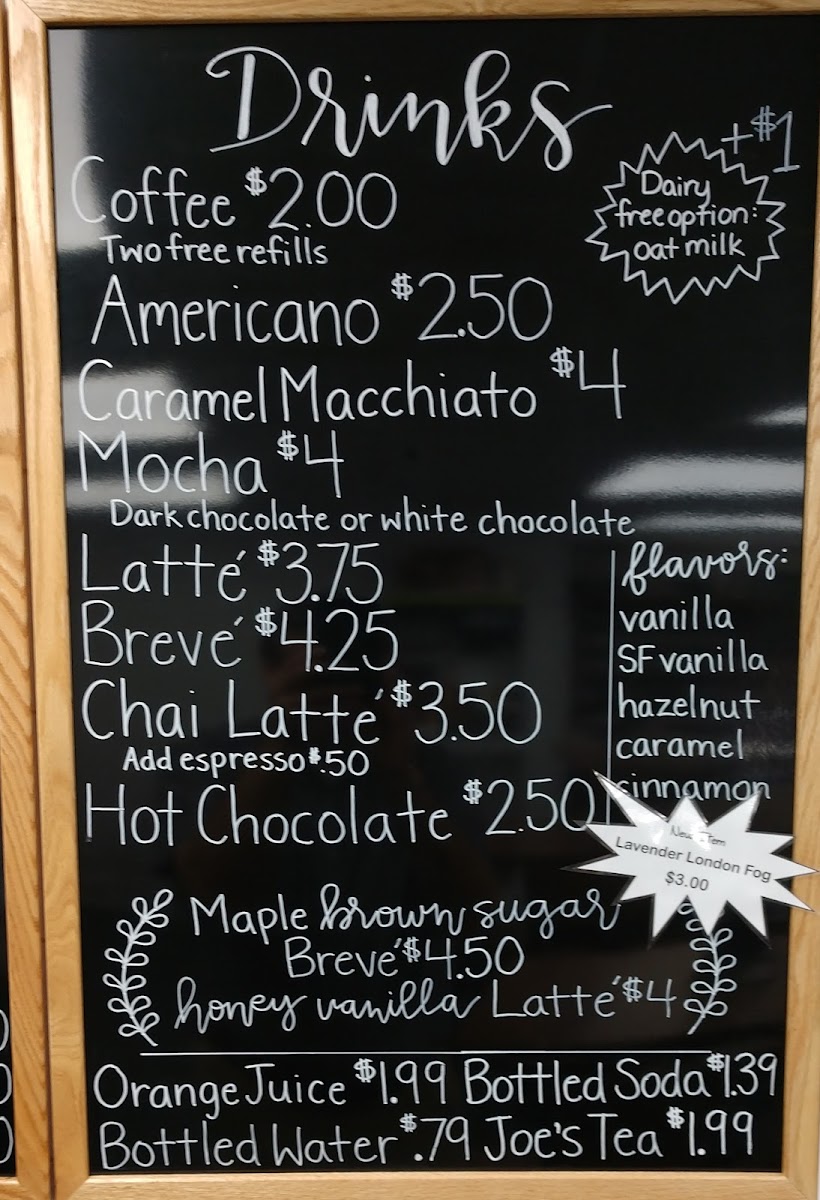 Drinks
+$1
Dairy
free option:
oat milk
Coffee $2.00
Two free refills
Americano $2.50
Caramel Macchiato $4
Mocha $4
Dark chocolate or white chocolate
Latté $3.75
Brevé $4.25
Chai Latté $3.50
Add espresso $.50
Hot Chocolate $2.50
flavors:
vanilla
SF vanilla
hazelnut
caramel
cinnamon
New Item
Lavender London Fog
$3.00
Maple brown sugar
Brevé $4.50
honey vanilla Latté $4
Orange Juice $1.99 Bottled Soda $1.39
Bottled Water $.79 Joe's Tea $1.99